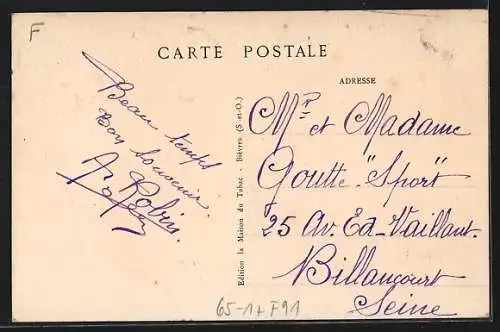 F
CARTE POSTALE
ADRESSE
Beau temps
Bon souvenir.
Robin.
Edition la Maison du Tabac - Bièvres (S.-et-O.)
Mr et Madame
Goutte "Sport"
25 Av. Ed-Vaillant.
Billancourt
Seine
65-1+F91